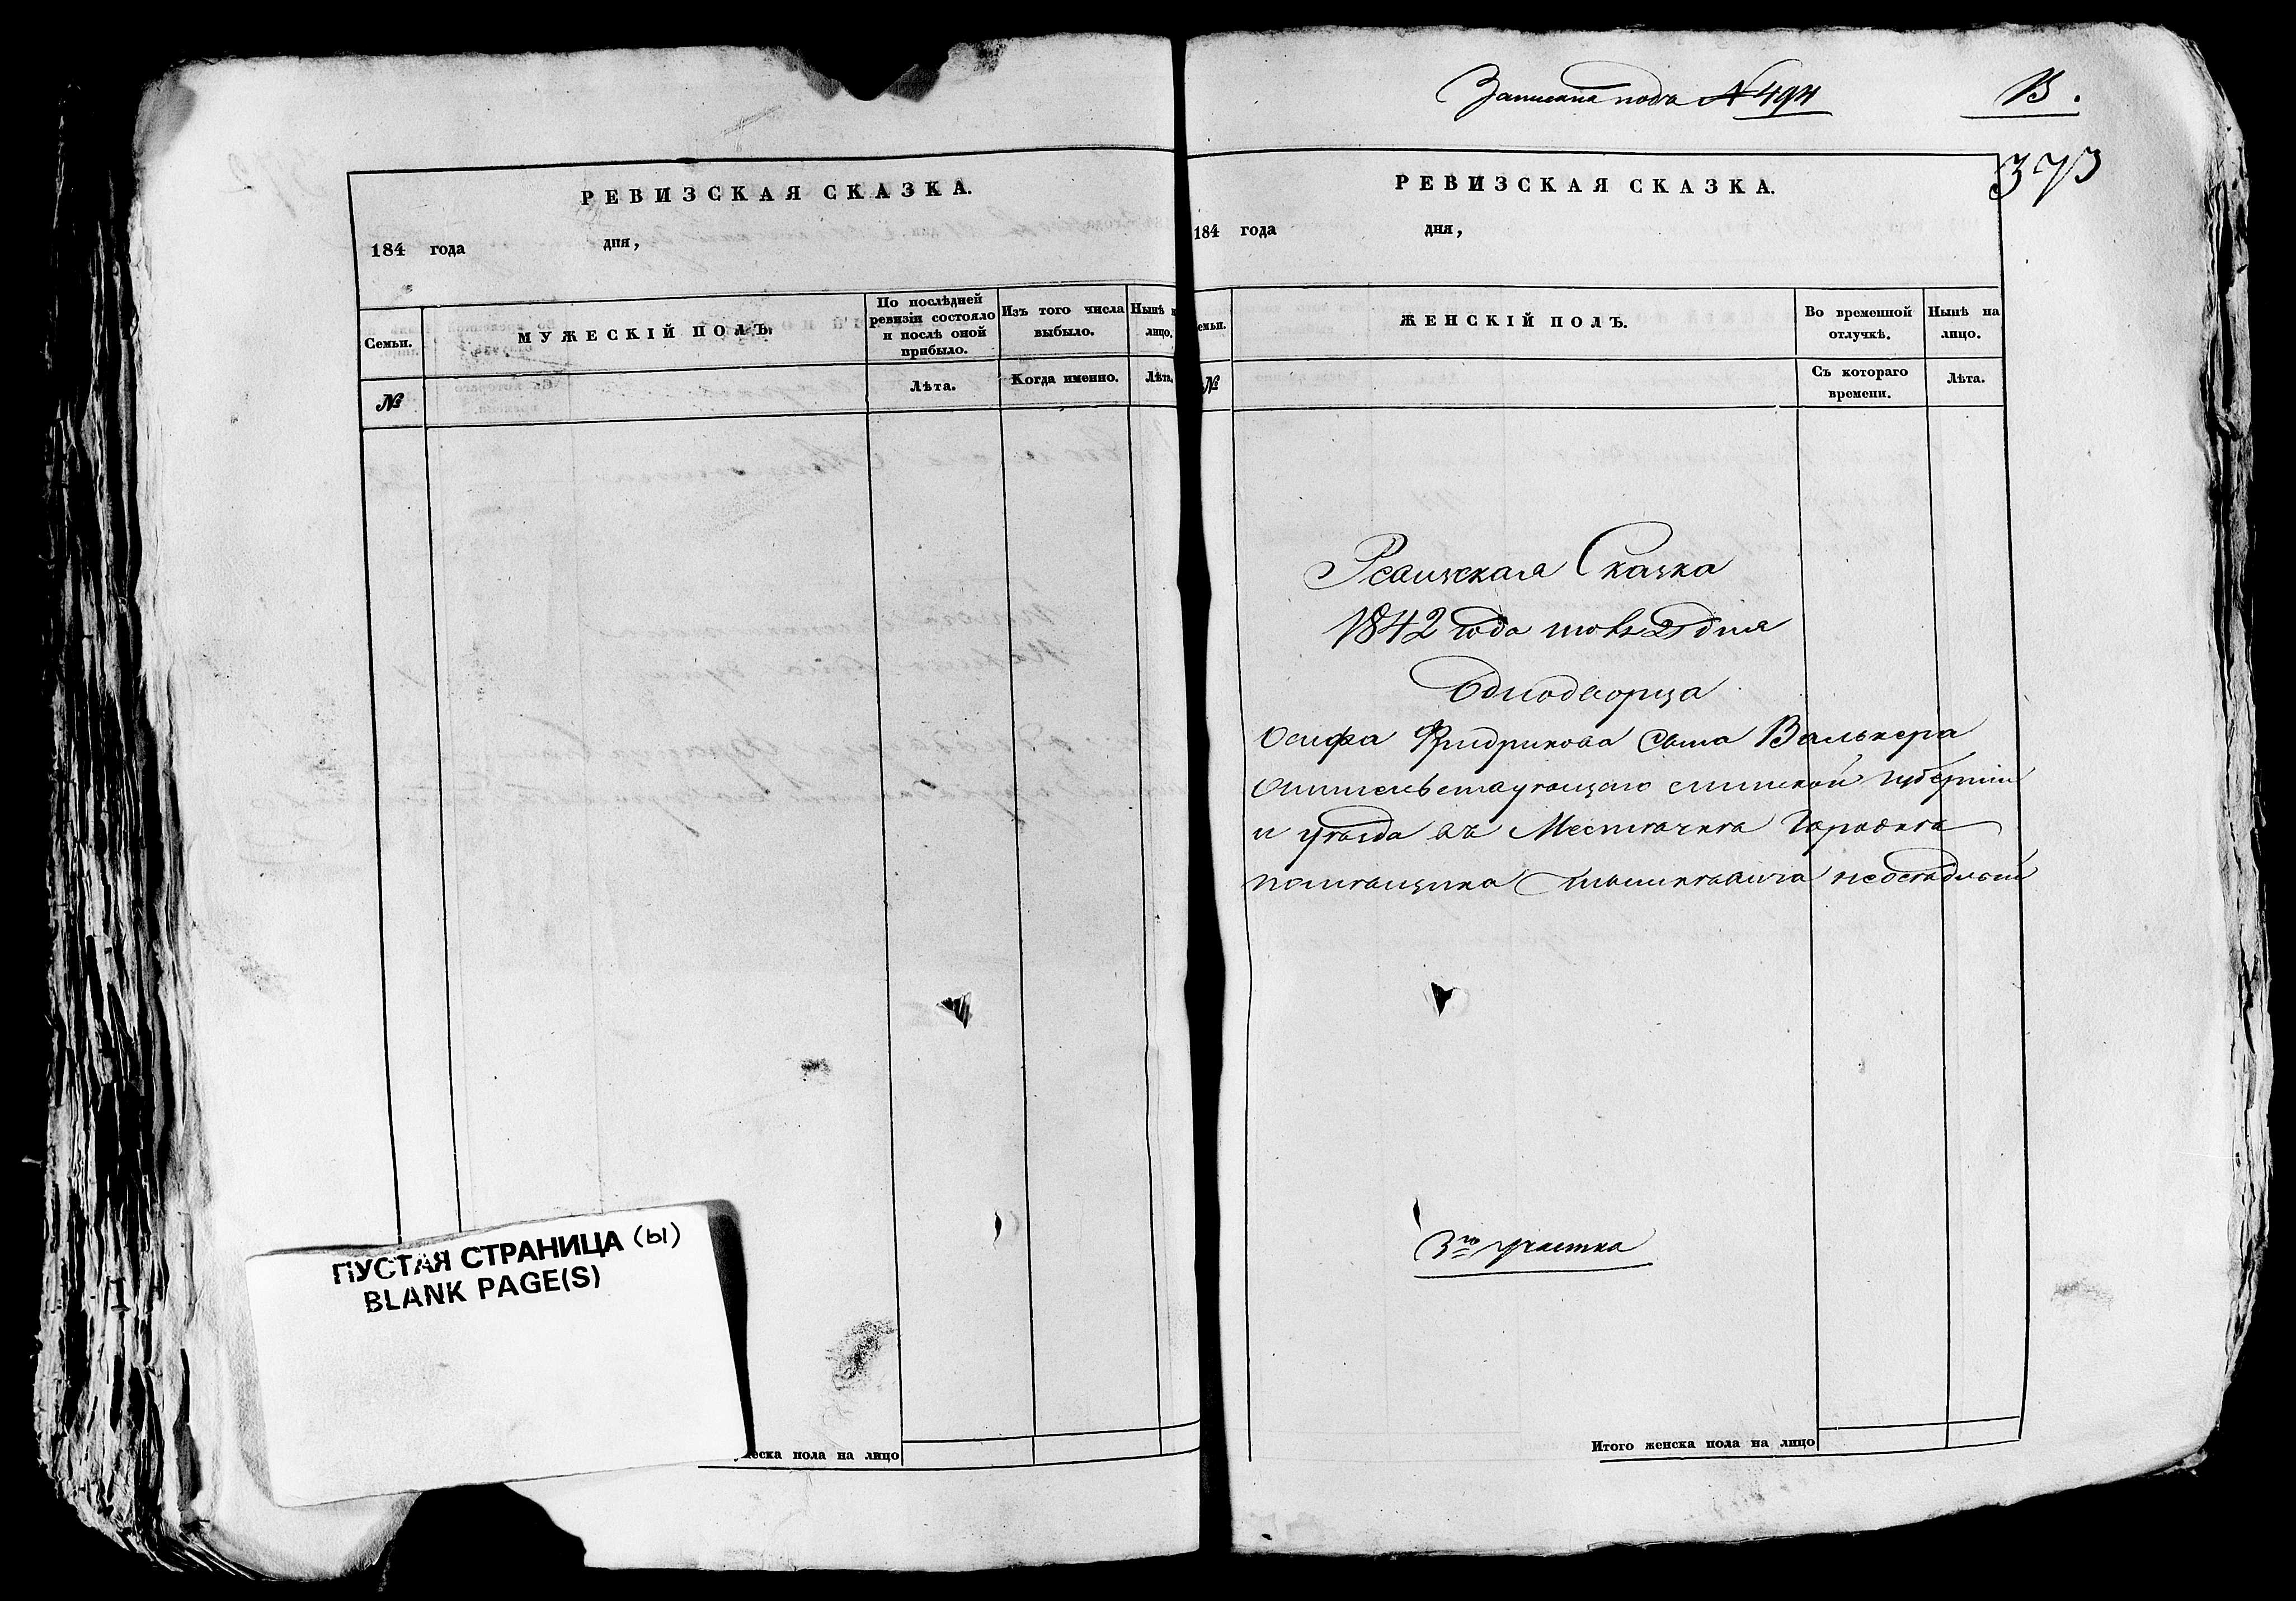 РЕВИЗСКАЯ СКАЗКА.
184 года дня,
Семьи. МУЖЕСКІЙ ПОЛЪ. По послѣдней ревизіи состояло и послѣ оной прибыло. Изъ того числа выбыло. Нынѣ н лицо.
№ Лѣта. Когда именно. Лѣта.
ПУСТАЯ СТРАНИЦА (Ы)
BLANK PAGE(S)
еска пола на лицо
Записана подъ №494 В.
373
РЕВИЗСКАЯ СКАЗКА.
184 года дня,
емьи. ЖЕНСКІЙ ПОЛЪ. Во временной отлучкѣ. Нынѣ на лицо.
№ Съ котораго времени. Лѣта.
Ревизская Сказка
1842 года дня
Однодворца
Осифа Фридрикова сына Валькера
Жительствующаго Минской губерніи
и уѣзда въ Местѣчкѣ Городкѣ
помѣщика неосѣдлый
3го участка
Итого женска пола на лицо